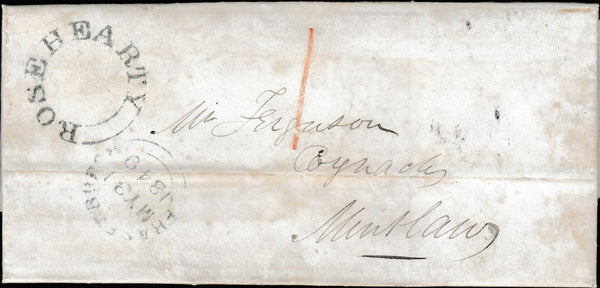 ROSEHEARTY
FRASERBURGH
MY 31
1849
1
Mr Ferguson
Mintlaw